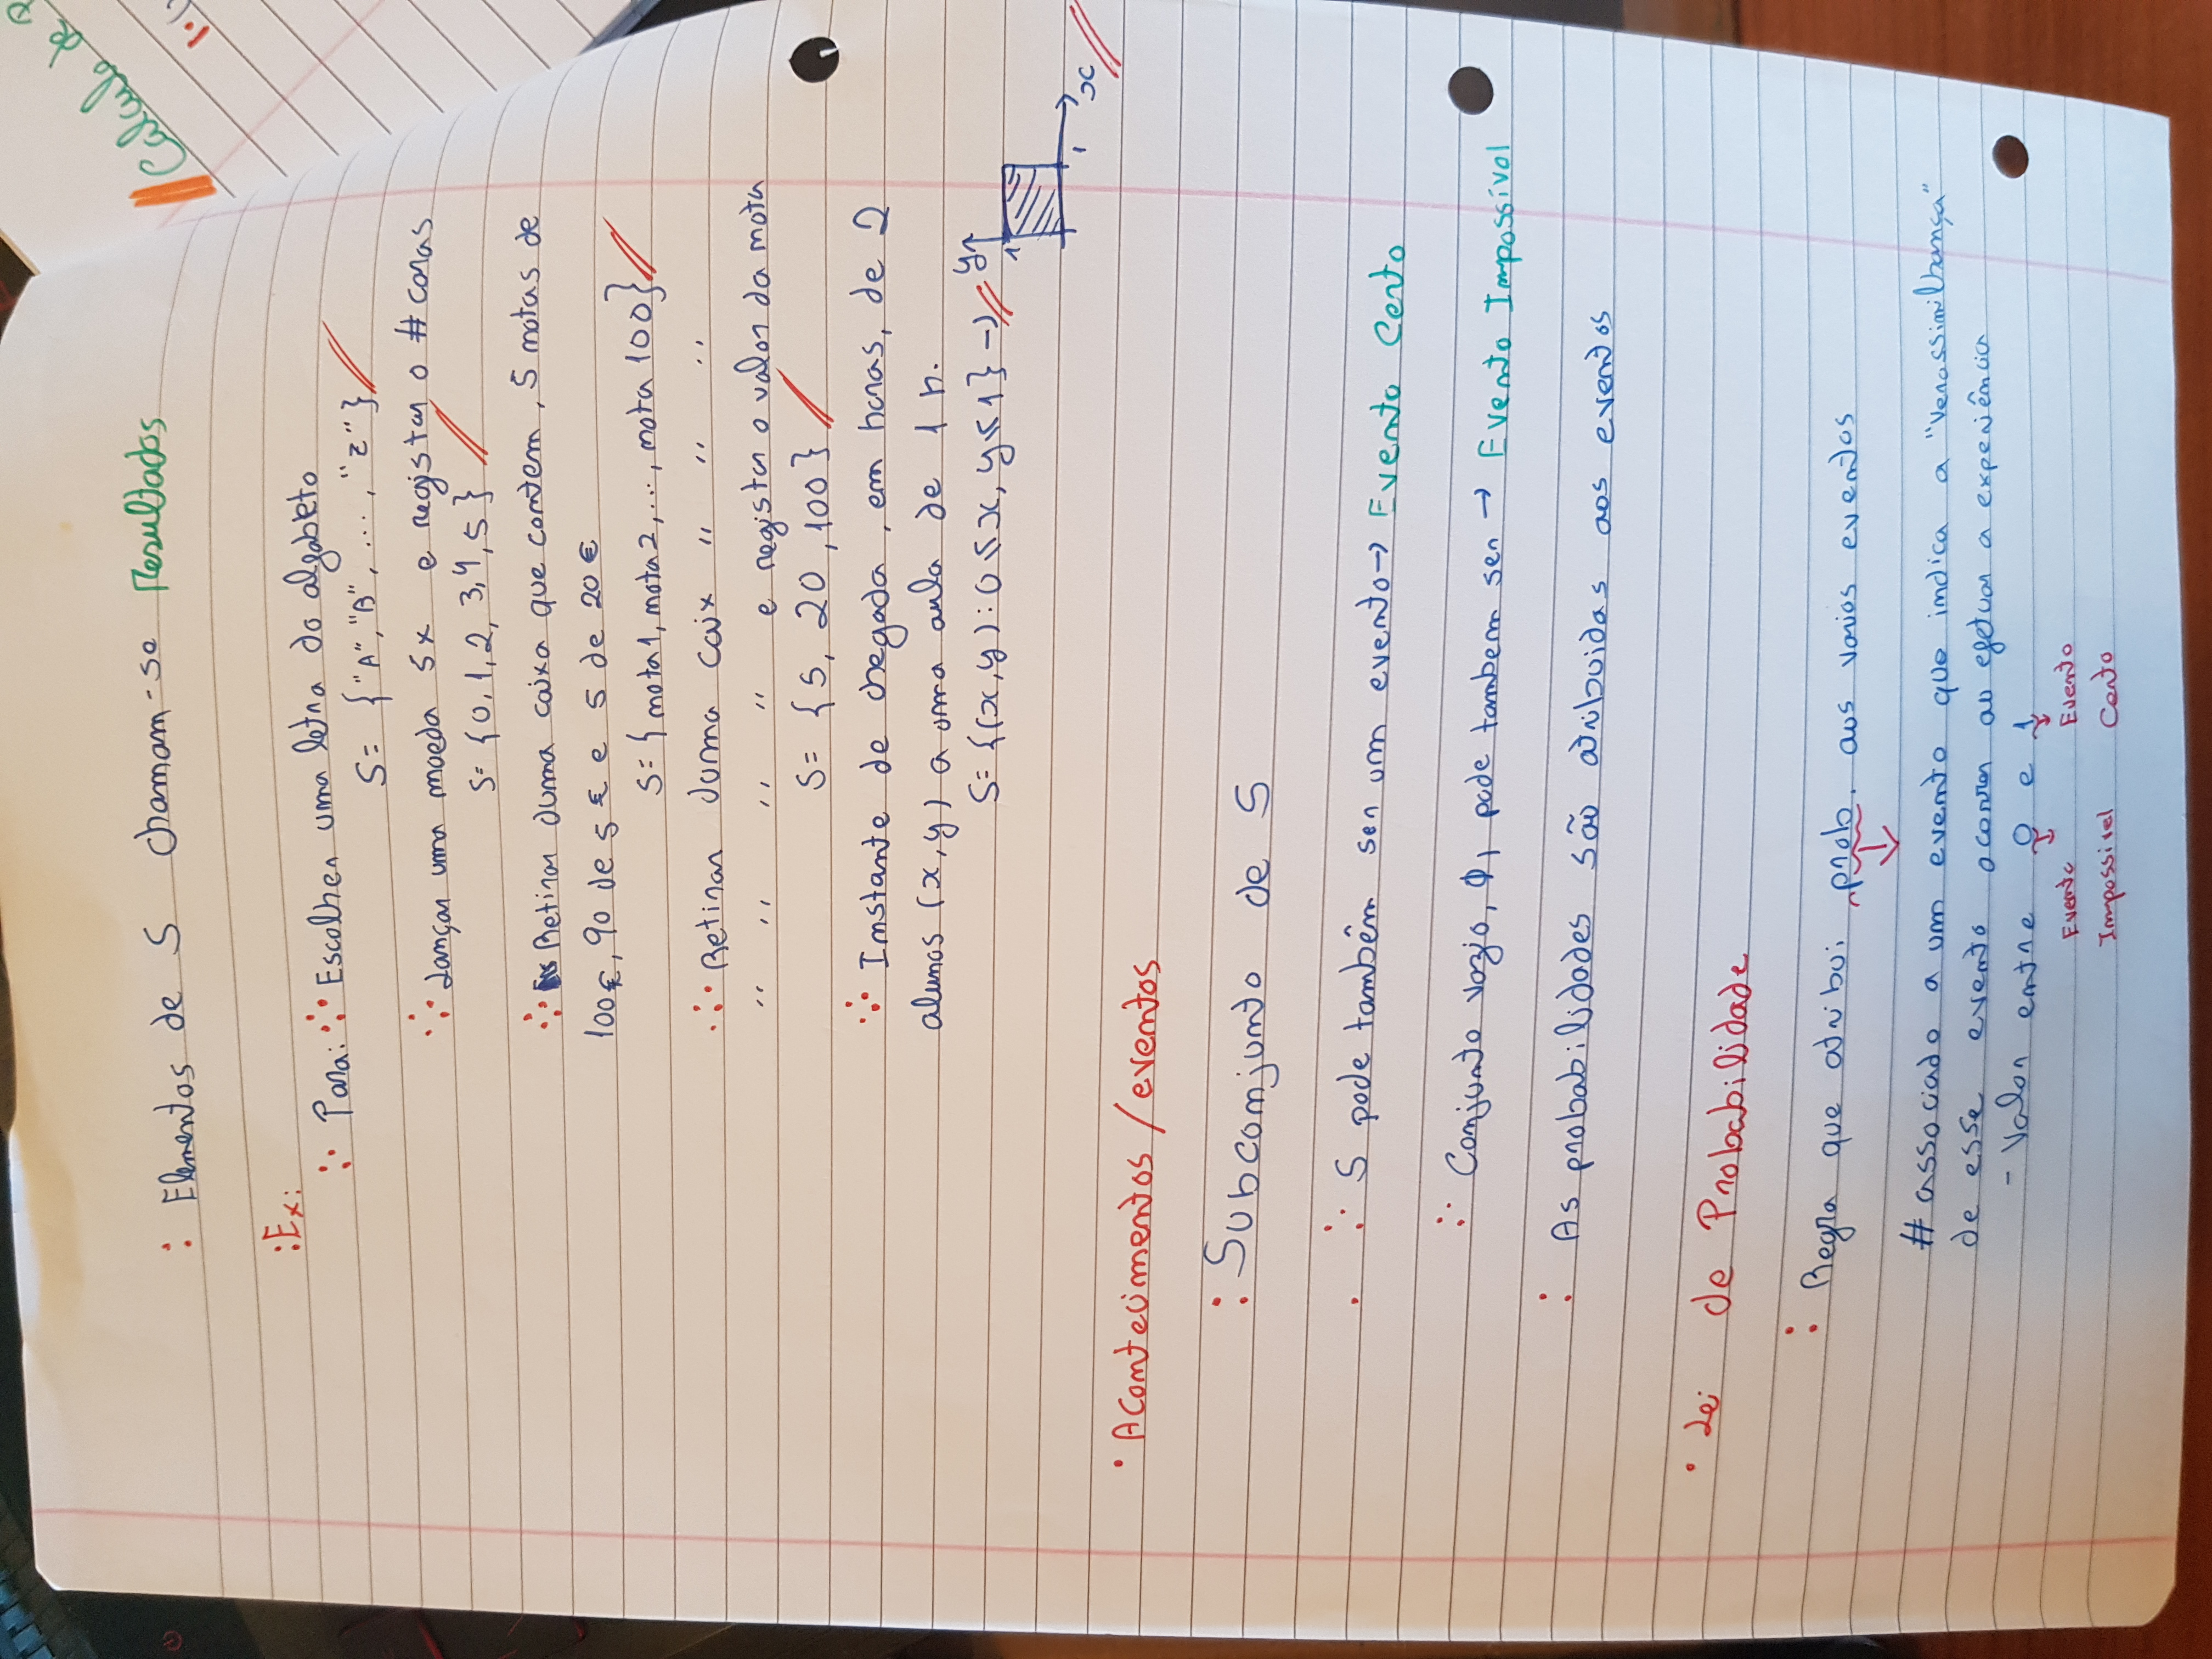 : Elementos de S chamam-se Resultados
: Ex:
Para: Escolher uma letra do alfabeto
S= {"A", "B", ..., "Z"}
Lançar uma moeda 5x e registar o # caras
S= {0, 1, 2, 3, 4, 5}
Retirar duma caixa que contem, 5 notas de
100€, 90 de 5€ e 5 de 20€
S= {nota1, nota2, ..., nota 100}
Retirar duma caix " " "
" " " " e registar o valor da nota
S= {5, 20, 100}
Instante de chegada, em horas, de 2
alunos (x,y) a uma aula de 1 h.
S= {(x,y): 0≤x, y≤1} → y
1
1 x
• Acontecimentos / eventos
: Subconjunto de S
S pode também ser um evento → Evento Certo
Conjunto vazio, ∅, pode tambem ser → Evento Impossível
: As probabilidades são atribuidas aos eventos
• Lei de Probabilidade
: Regra que atribui prob. aos varios eventos
# associado a um evento que indica a "verassimilhança"
de esse evento ocorrer ao efetuar a experiência
- Valor entre 0 e 1
Evento Evento
Impossivel Certo
Calculo de P